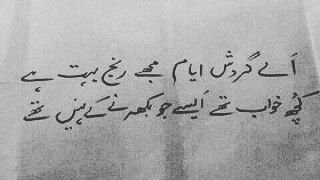 اَلے گردش ایام مجھے رنج بہت ہے
کُچھ خواب تھے اَیسے جو بکھرنے کے نہیں تھے